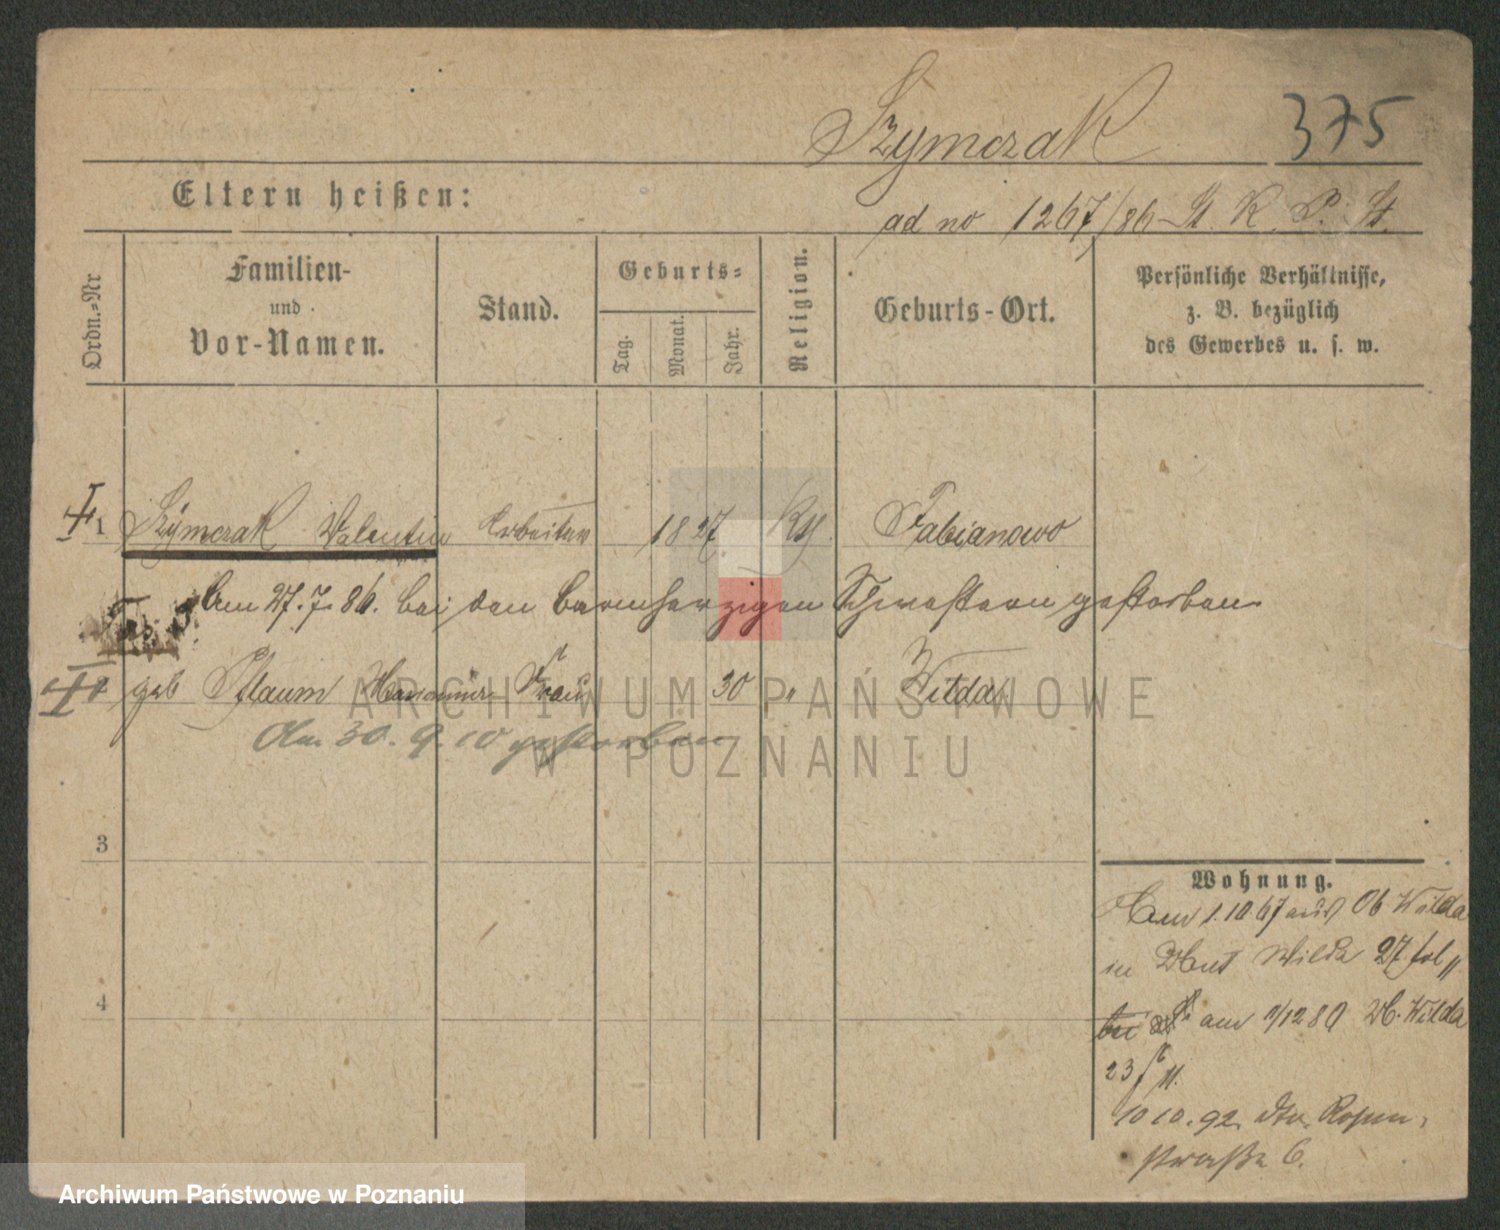 Szymczak 375
Eltern heißen:
ad no 1267/86 St. K. P. St.
Ordn.-Nr
Familien-
und
Vor-Namen.
Stand.
Geburts-
Tag.
Monat.
Jahr.
Religion.
Geburts-Ort.
Persönliche Verhältnisse,
z. B. bezüglich
des Gewerbes u. s. w.
1 Szymczak Valentin Arbeiter 1827 Kth. Fabianowo
Am 27.7.86. bei den barmherzigen Schwestern gestorben
geb Pflaum Frau 30 " Wilda
Am 30.9.10 gestorben
3
4
Wohnung.
1.10 67 aus Ob Wilda
in Unt Wilda 27 fol
am 1/12 80 Wilda
23
10 10. 92. Rosen-
straße 6.
ARCHIWUM PAŃSTWOWE
W POZNANIU
Archiwum Państwowe w Poznaniu